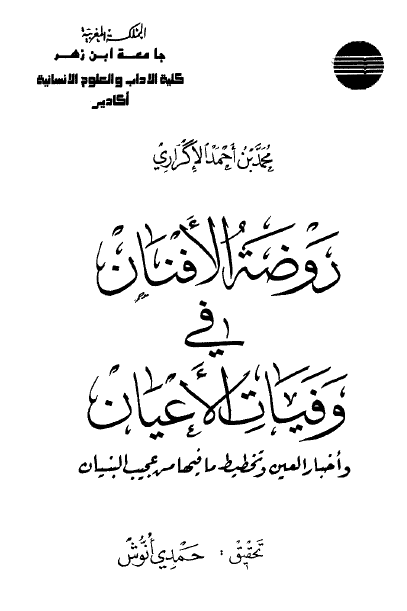 المملكة المغربية
جامعة ابن زهر
كلية الآداب والعلوم الانسانية
أكادير
محمَّد بْن أحمَد الإكرَاري
رَوضَة الأفنَان
في
وَفيَاتِ الأعيَان
وأخبار العين وتخطيط ما فيها من عجيب البنيان
تحقيق : حَمدي أنُّوش